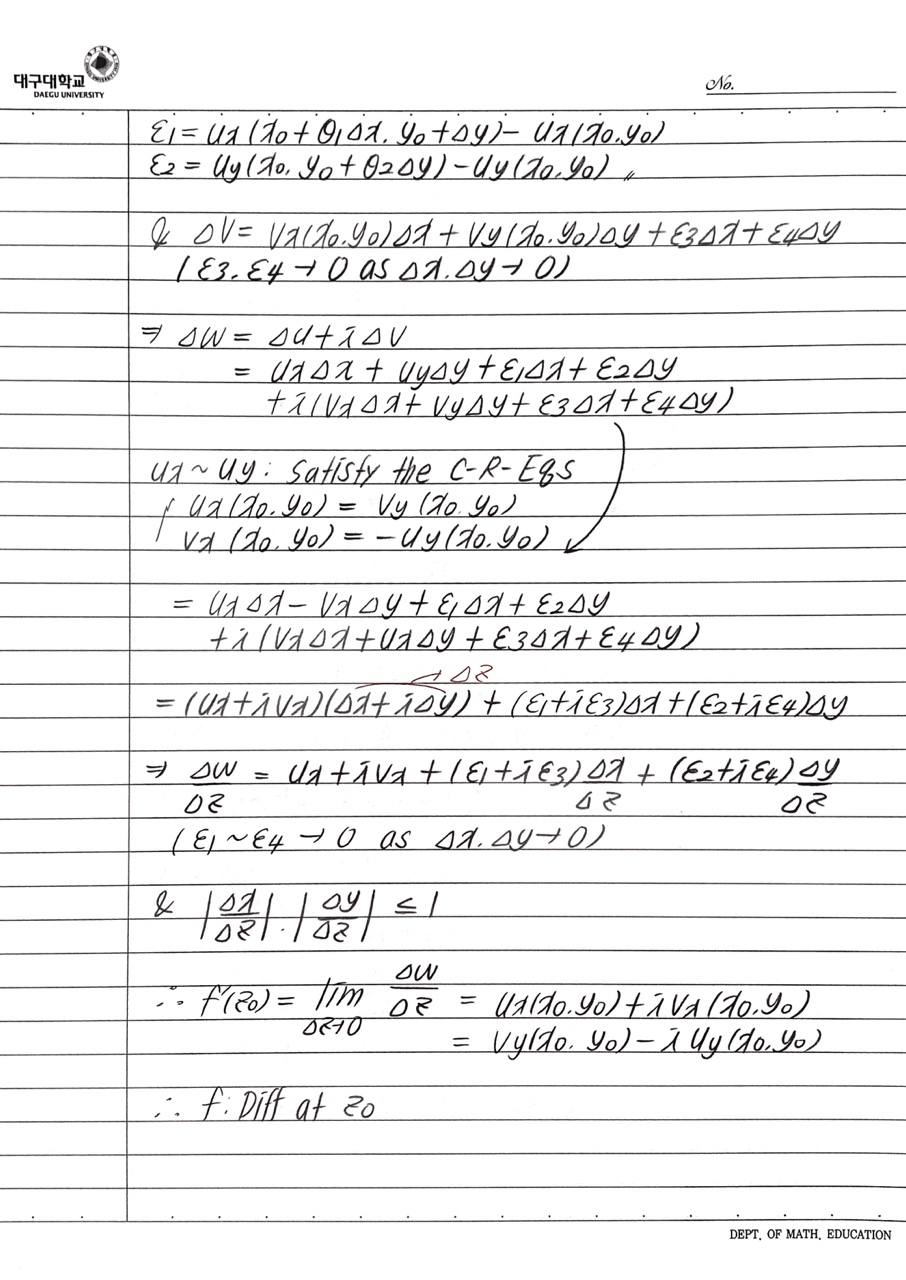 대구대학교
DAEGU UNIVERSITY
No.
ε1 = Ux(x0+θ1Δx. y0+Δy) - Ux(x0.y0)
ε2 = Uy(x0. y0+θ2Δy) - Uy(x0.y0) 〃
& ΔV = Vx(x0.y0)Δx + Vy(x0.y0)Δy + ε3Δx + ε4Δy
(ε3.ε4 → 0 as Δx.Δy → 0)
⇒ ΔW = ΔU + iΔV
= UxΔx + UyΔy + ε1Δx + ε2Δy
+ i(VxΔx + VyΔy + ε3Δx + ε4Δy)
Ux ~ Uy : Satisfy the C-R-Eqs
Ux(x0.y0) = Vy(x0.y0)
Vx(x0.y0) = -Uy(x0.y0)
= UxΔx - VxΔy + ε1Δx + ε2Δy
+ i(VxΔx + UxΔy + ε3Δx + ε4Δy)
→ ΔZ
= (Ux+iVx)(Δx+iΔy) + (ε1+iε3)Δx + (ε2+iε4)Δy
⇒ ΔW/ΔZ = Ux + iVx + (ε1+iε3)Δx/ΔZ + (ε2+iε4)Δy/ΔZ
(ε1 ~ ε4 → 0 as Δx.Δy → 0)
& |Δx/ΔZ|.|Δy/ΔZ| ≤ 1
∴ f'(Z0) = lim ΔZ→0 ΔW/ΔZ = Ux(x0.y0) + iVx(x0.y0)
= Vy(x0.y0) - iUy(x0.y0)
∴ f : Diff at Z0
DEPT. OF MATH. EDUCATION